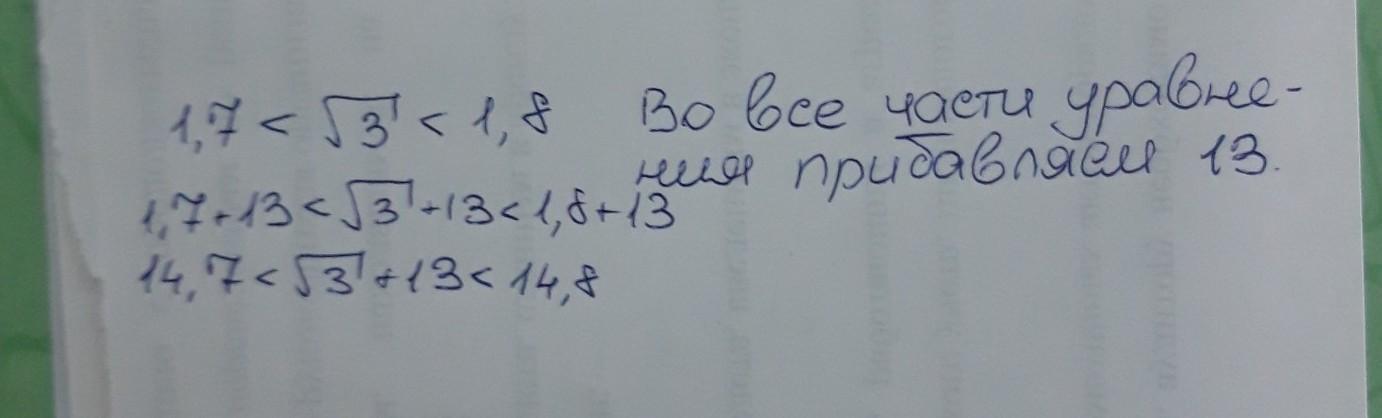 1,7 < √3 < 1,8 Во все части уравне-
ния прибавляем 13.
1,7+13 < √3+13 < 1,8+13
14,7 < √3+13 < 14,8